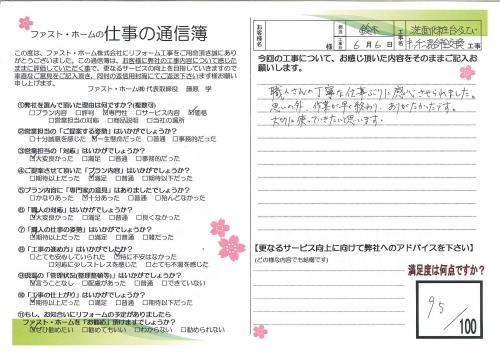 ファスト・ホームの仕事の通信簿
この度は、ファスト・ホーム株式会社にリフォーム工事をご用命頂き誠にあり
がとうございました。この通信簿は、お客様に弊社の工事内容について感じたま
まに評価していただく事で、更なるサービスの向上を目指していきますので
率直なご意見をご記入頂き、同封の返信用封筒にてご返送下さいます様お願い
申し上げます。
ファスト・ホーム㈱ 代表取締役 藤原 学
①弊社を選んで頂いた理由は何ですか?(複数可)
□プラン内容 □評判 ☑専門性 ☑サービス内容 ☑価格
□営業担当の対応 □商品説明 □当社の場所
②営業担当の「ご提案する姿勢」はいかがでしょうか?
□十分誠意を感じた ☑一生懸命だった □普通 □事務的だった
③営業担当の「対応」はいかがでしょうか?
☑大変良かった □満足 □普通 □事務的だった
④ご提案させて頂いた「プラン内容」はいかがでしょうか?
□期待以上だった ☑満足 □普通 □期待以下だった
⑤プラン内容に「専門家の意見」はありましたでしょうか?
□かなりあった ☑十分あった □普通 □殆んどなかった
⑥「職人の対応」はいかがでしょうか?
☑大変良かった □満足 □普通 □良くなかった
⑦「職人の仕事の姿勢」はいかがでしょうか?
☑期待以上だった □満足 □普通 □期待以下だった
⑧「工事の進め方」はいかがでしたか?
□とても安心していられた ☑特に不安はなかった
□対応に少しストレスを感じた □とても不満を感じた
⑨現場の「管理状況(整理整頓等)」はいかがでしょうか?
☑言うことなし □配慮があった □普通 □できていない
⑩「工事の仕上がり」はいかがでしょうか?
☑期待以上だった □満足 □普通 □期待以下だった
⑪もし、お知合いにリフォームの予定がありましたら
ファスト・ホームを「お勧め」頂けますでしょうか?
☑ぜひ勧めたい □勧めてもいい □わからない □勧められない
お客様名
鈴木
様
6月6日
工事名
洗面化粧台及び
キッチン混合栓交換
工事
今回の工事について、お感じ頂いた内容をそのままご記入お
願いします。
職人さんの丁寧な仕事ぶりに感心させられました。
思いの外、作業が早く終わり、ありがたかったです。
大切に使っていきたいと思います。
【更なるサービス向上に向けて弊社へのアドバイスを下さい】
(どの様な内容でも結構です)
満足度は何点ですか?
95
/100